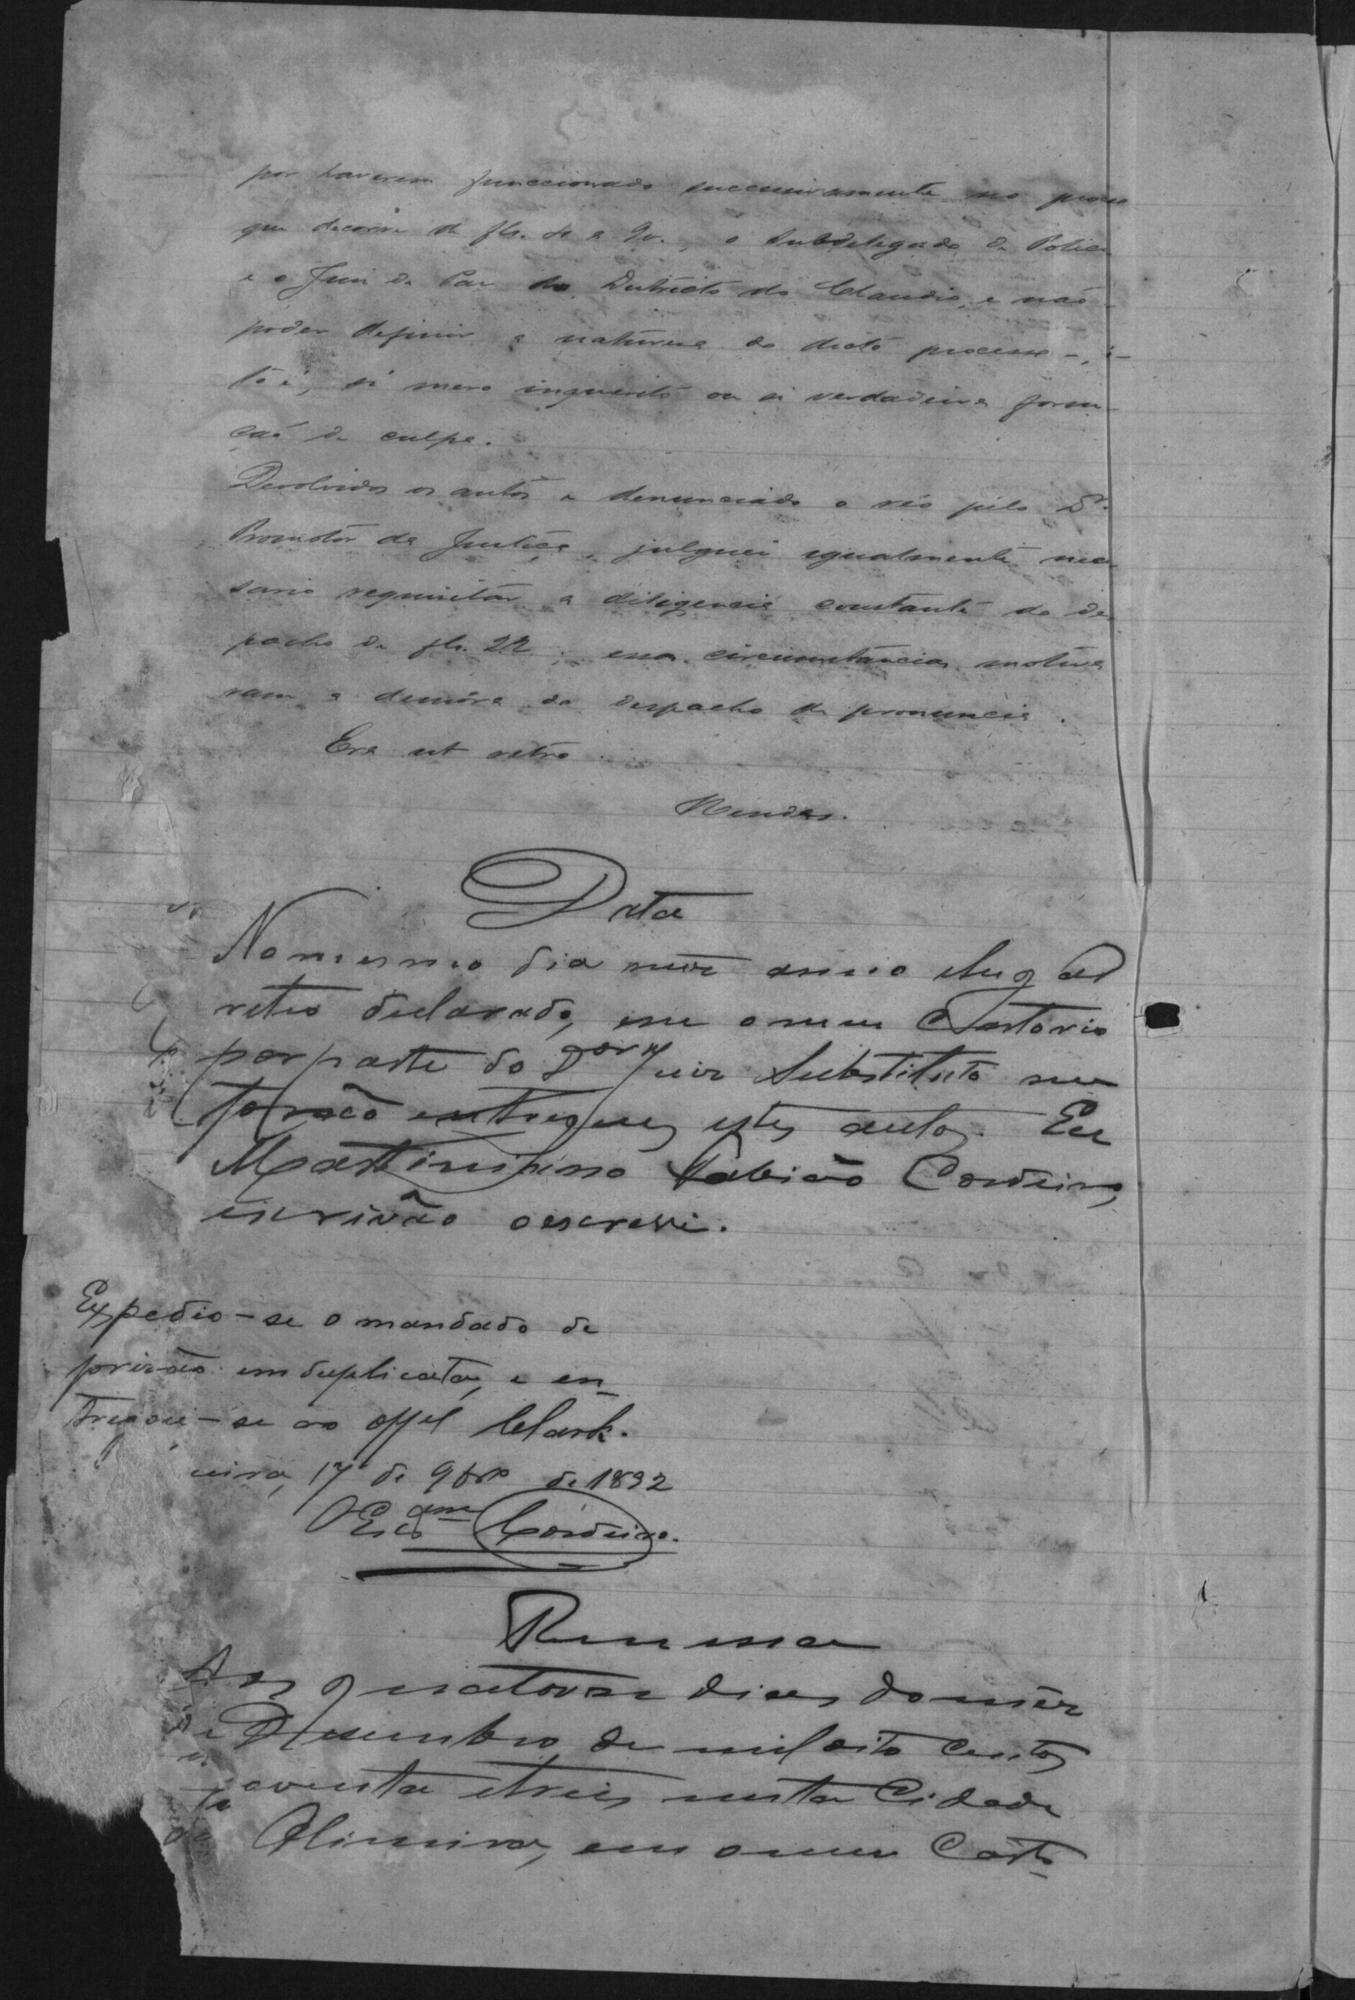 por haverem funccionado successivamente no proces
que decorre de fls. 2 a 9v., o subdelegado de Policia
e o Juiz de Paz do Districto do Claudio, e não
poder definir a natureza do dicto processo —, is-
to é, si mero inquerito ou si verdadeira forma
ção de culpa.
Devolvidos os autos e denunciado o réo pelo Dr.
Promotor da Justiça, julguei igualmente neces
sario requisitar a diligencia constante do des
pacho de fls. 22: essas circumstancias motiva
ram a demóra do despacho de pronuncia.
Era ut retro
Mendes.
Data
No mesmo dia mez anno e lugar
retro declarado, em o meu Cartorio
por parte do Dor Juiz Substituto me
forão entregues estes autos. Eu
Martiniano Fabião Cordeiro,
escrivão o escrevi.
Expedio-se o mandado de
prizão em duplicata, e en-
tregou-se ao offel Clark.
eira, 17 de 9bro de 1892
O Escam Cordeiro.
Remessa
Aos quatorze dias do mez
de Dezembro de mil oito centos
noventa e treis nesta Cidade
da Oliveira, em o meu Carto-